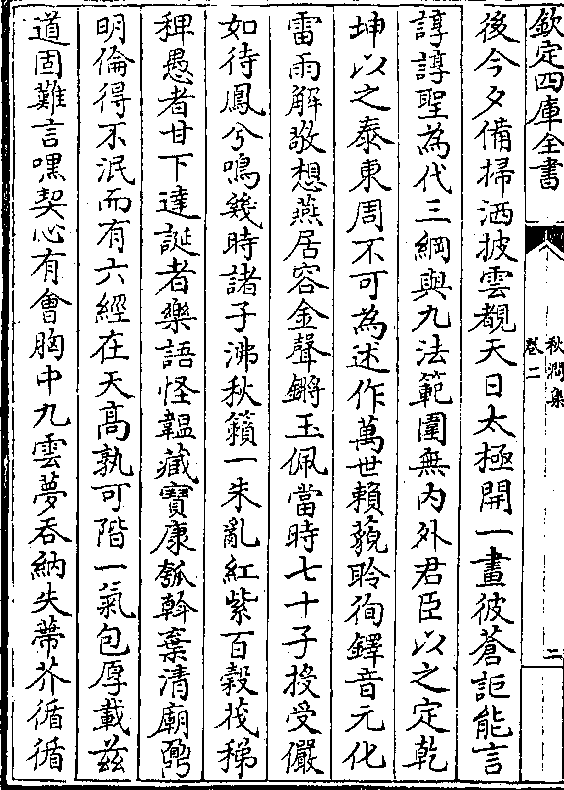 欽定四庫全書
秋澗集
卷二
二
後今夕備掃洒披雲覩天日太極開一畫彼蒼詎能言
諄諄聖為代三綱與九法範圍無内外君臣以之定乾
坤以之泰東周不可為述作萬世賴藐聆徇鐸音元化
雷雨解敬想燕居容金聲鏘玉佩當時七十子授受儼
如待鳳兮鳴幾時諸子沸秋籟一朱亂紅紫百穀茷稊
稗愚者甘下達誕者樂語怪韞藏寶康瓠斡棄清廟鼐
明倫得不泯而有六經在天高孰可階一氣包厚載兹
道固難言嘿契心有會胸中九雲夢吞納失蔕芥循循